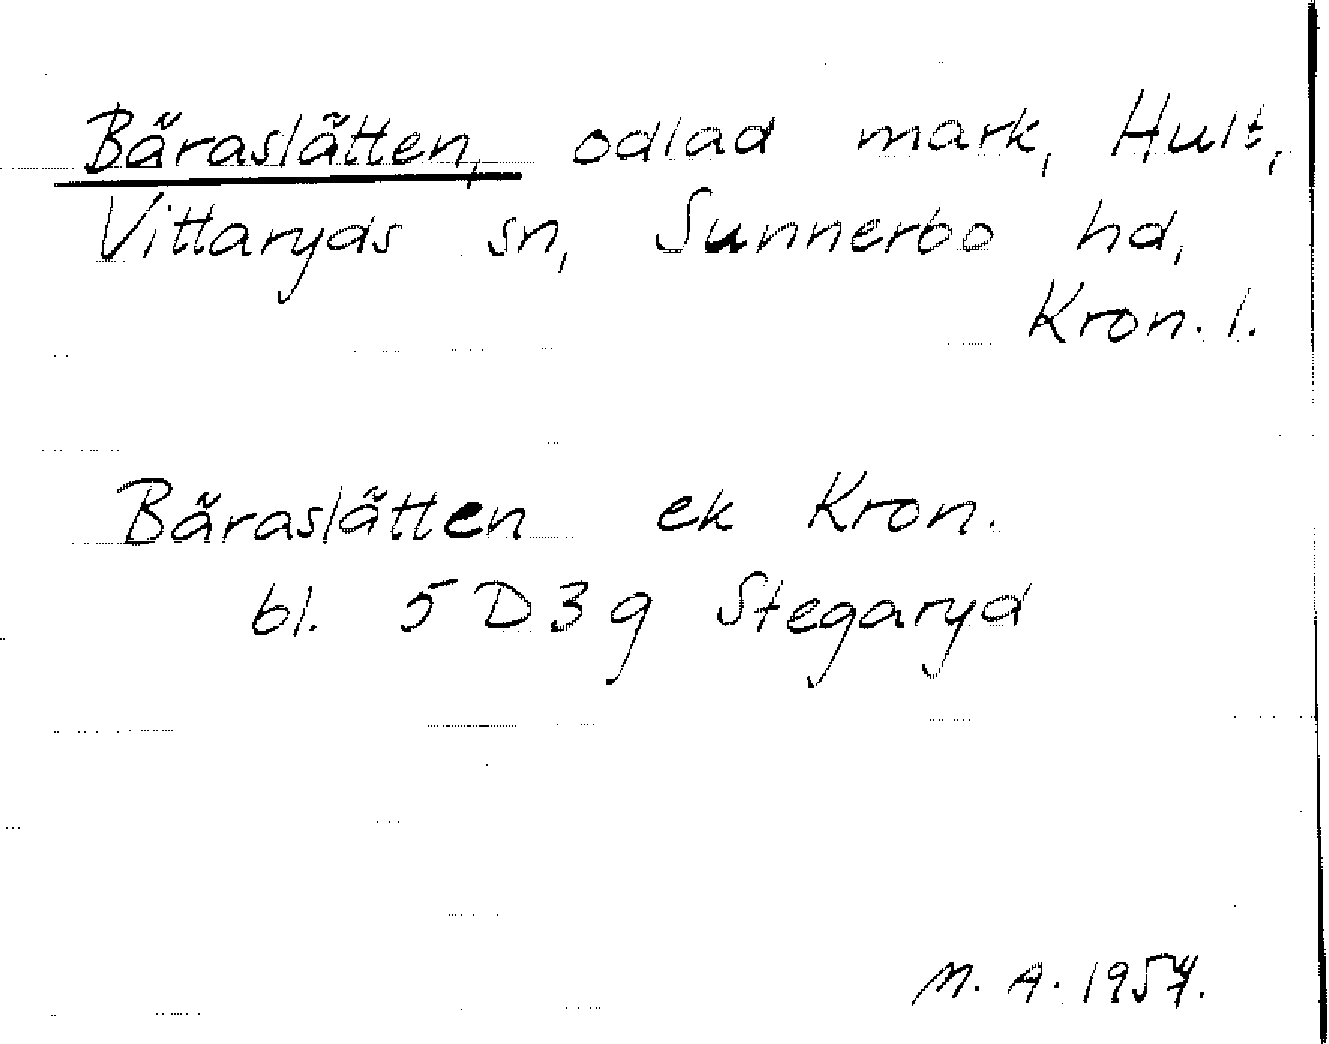 Bäraslätten, odlad mark, Hult,
Vittaryds sn, Sunnerbo hd,
Kron. l.
Bäraslätten ek Kron.
bl. 5 D 3 g Stegaryd
M. A. 1957.